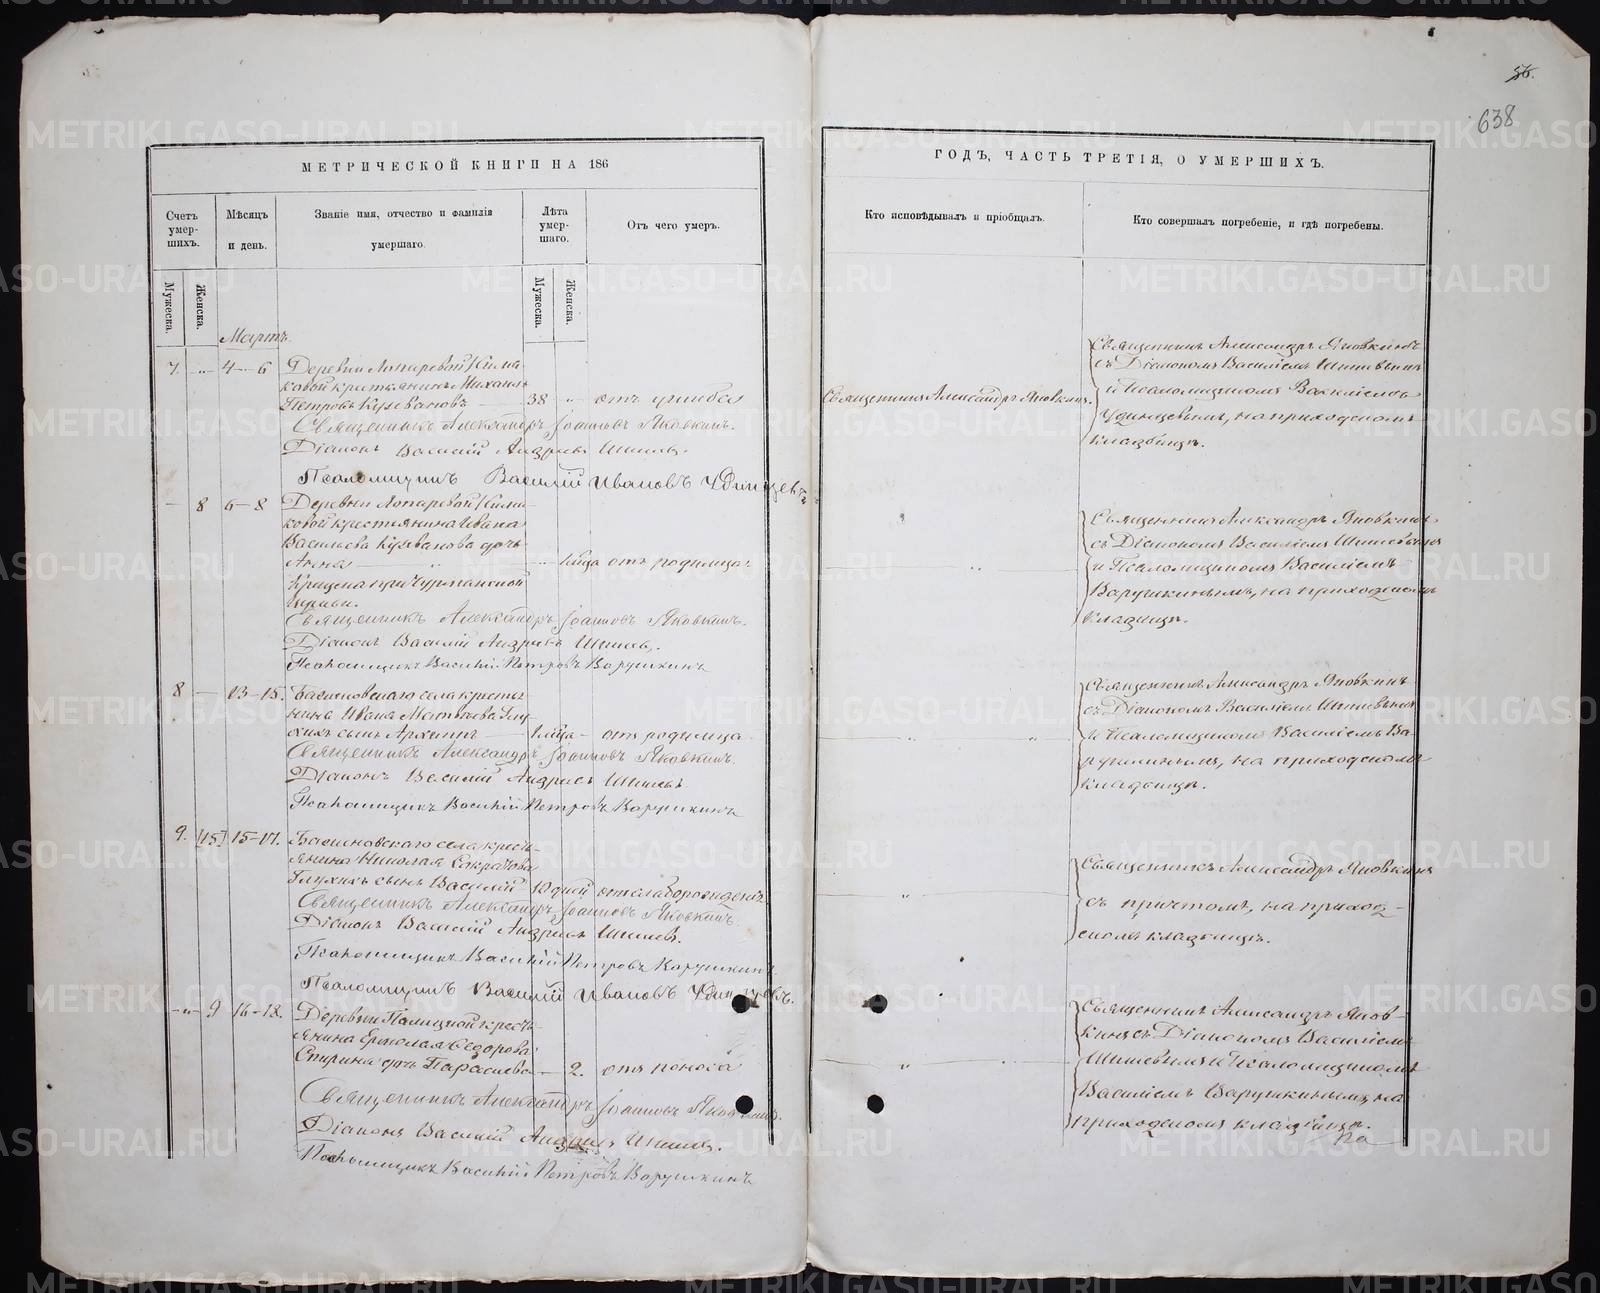 56.
638
МЕТРИЧЕСКОЙ КНИГИ НА 186
ГОДЪ, ЧАСТЬ ТРЕТІЯ, О УМЕРШИХЪ.
Счетъ умер-шихъ.
Мѣсяцъ и день.
Званіе имя, отчество и фамилія умершаго.
Лѣта умер-шаго.
Отъ чего умеръ.
Кто исповѣдывалъ и пріобщалъ.
Кто совершалъ погребеніе, и гдѣ погребены.
Мужеска.
Женска.
Мужеска.
Женска.
Мартъ.
7. „ 4–6 Деревни
ковой крестьянинъ Михаилъ
Петровъ 38 „ отъ ушиба
Священникъ Александръ Яновкинъ.
Священникъ Александръ Іоанновъ Яновкинъ.
Діаконъ Василій Андреевъ Шишевъ.
Псаломщикъ Василій Ивановъ Удинцевъ
Священникъ Александръ Яновкинъ
съ Діакономъ Василіемъ Шишевымъ
и Псаломщикомъ Василіемъ
Удинцевымъ, на приходскомъ
кладбищѣ.
– 8 6–8 Деревни
ковой крестьянина Ивана
Васильева дочь
Анна отъ родимца.
Крещена при
церкви.
Священникъ Александръ Іоанновъ Яновкинъ.
Діаконъ Василій Андреевъ Шишевъ.
Псаломщикъ Василій Петровъ Варушкинъ
Священникъ Александръ Яновкинъ
съ Діакономъ Василіемъ Шишевымъ
и Псаломщикомъ Василіемъ
Варушкинымъ, на приходскомъ
кладбищѣ.
8 – 13–15. села крестья-
нина Ивана Матвѣева Глу-
хихъ сынъ Архиппъ отъ родимца
Священникъ Александръ Іоанновъ Яновкинъ.
Діаконъ Василій Андреевъ Шишевъ
Псаломщикъ Василій Петровъ Варушкинъ
Священникъ Александръ Яновкинъ
съ Діакономъ Василіемъ Шишевымъ
и Псаломщикомъ Василіемъ Ва-
рушкинымъ, на приходскомъ
кладбищѣ.
9. [15] 15–17. села кресть-
янина Николая
Глухихъ сынъ Василій 10 дней отъ слаборожденія
Священникъ Александръ Іоанновъ Яновкинъ.
Діаконъ Василій Андреевъ Шишевъ.
Псаломщикъ Василій Петровъ Варушкинъ
Псаломщикъ Василій Ивановъ Удинцевъ.
Священникъ Александръ Яновкинъ
съ причтомъ, на приход-
скомъ кладбищѣ.
„ 9 16–18. Деревни кресть-
янина Ермолая Ѳедорова
Спирина дочь Параскева – 2. отъ поноса
Священникъ Александръ Іоанновъ Яновкинъ.
Діаконъ Василій Андреевъ Шишевъ.
Псаломщикъ Василій Петровъ Варушкинъ
Священникъ Александръ Янов-
кинъ съ Діакономъ Василіемъ
Шишевымъ и Псаломщикомъ
Василіемъ Варушкинымъ, на
приходскомъ кладбищѣ.
METRIKI.GASO-URAL.RU